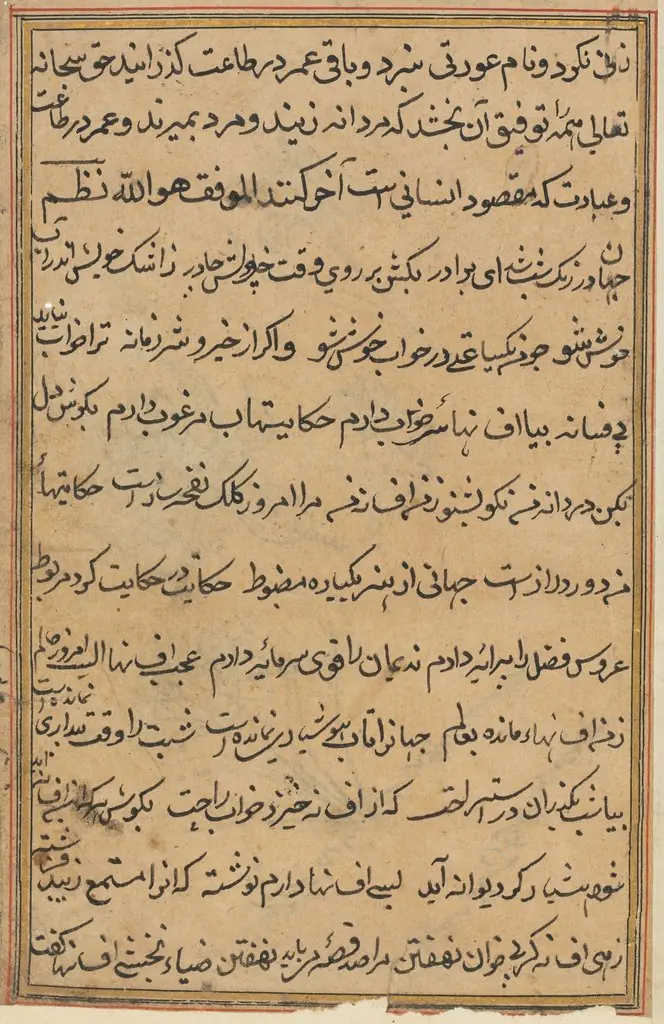 زنی نکرد و نام عورتی نبرد و باقی عمر در طاعت کذرانید حق سبحانه
تعالی همه را توفیق آن بخشد که مردانه زیند و مرد بمیرند و عمر در طاعت
و عبادت که مقصود انسانی است آخر کنند الموفق هو الله نظم
جهان در زیک شب ای برادر بکش بر روی وقت خویش چادر ز اشک خویش اندر آب
خوش شو چو نرکس ساعتی در خواب خوش شو و اکر از خیر و شر زمانه ترا خواب نیاید
بی فسانه بیا افسانهاء خوب دارم حکایتهاء مرغوب دارم بکوش دل
بکن دردانه نکو بشنو ز من افسانه مرا امروز کلک نغمه ساز است حکایتهاء
من دور و دراز است جهانی از هنر یکباره مضبوط حکایت در حکایت کرده مربوط
عروس فضل را پیرایه دادم ندیمان را قوی سرمایه دادم عجب افسانها است امروز عالم
ز من افسانهاء مانده بعالم جهانرا تاب هوشیاری نمانده است شبت را وقت بیداری نمانده است
بیا شب بکذران در استراحت که از افسانه خیزد خواب راحت بکوش هر که افسانه در آید
شود هشیار کر دیوانه آید بسی افسانها دارم نوشته که آنرا مستمع زیبد فرشته
زهی افسانه کربی خوان نهفتن مرا صد قصه می باید نهفتن ضیاء نخشبی افسانه کفت